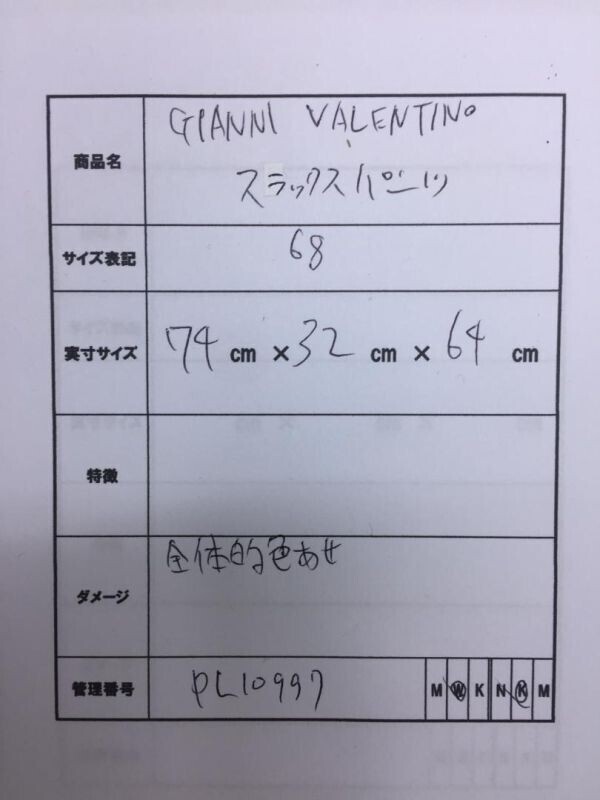 商品名
GIANNI VALENTINO
スラックスパンツ
サイズ表記 68
実寸サイズ 74 cm × 32 cm × 64 cm
特徴
ダメージ 全体的色あせ
管理番号 PL10997 M W K N K M